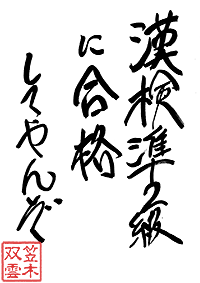 漢検準2級
に合格
してやんぞ
笠木
双雲